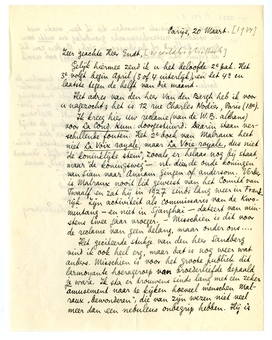 Parijs, 20 Maart. [1934]
Zeer geachte Heer Endt,
Gelijk hiermee zend ik u het beloofde 2e pak. Het
3e volgt begin April (5 of 6 uiterlijk) en het 4e en
laatste tegen de helft van die maand.
Het adres van den Hr. Van den Bergh heb ik voor
u nagezocht; het is 12 rue Charles Nodier, Paris (18e).
Ik kreeg hier uw reclame (van de W.B. aldaar)
voor La Cond. Hum. doorgestuurd. Daarin staan ver-
schillende fouten. Het 2e boek van Malraux heet
niet La Voix royale, maar La Voie royale, dus niet
de koninklijke stem, zooals er helaas nog bij staat,
maar de koningsweg — n.l. dien de oude koningen
van Siam naar Annam gingen of andersom. Verder
is Malraux nooit lid geweest van het Comité van
Twaalf en zat hij in 1927 sinds lang weer in Frank-
rijk. Zijn activiteit als commissaris van de Kwo-
mintang — en niet in Sjanghai — dateert van min-
stens twee jaar vroeger. — Misschien is dit voor
de reclame van geen belang, maar anders ons....
Het geciteerde stukje van den heer Sandberg
vind ik ook heel erg, maar dat is nog weer wat
anders. Misschien is voor het groote publiek dit
larmoyante hoera geroep van broederliefde bepaald
je ware. Ik sta er trouwens sinds lang met een zeker
amusement naar te kijken hoeveel menschen Mal-
raux "bewonderen", die van zijn wezen niet veel
meer dan een nebuleus onbegrip hebben. Hij is